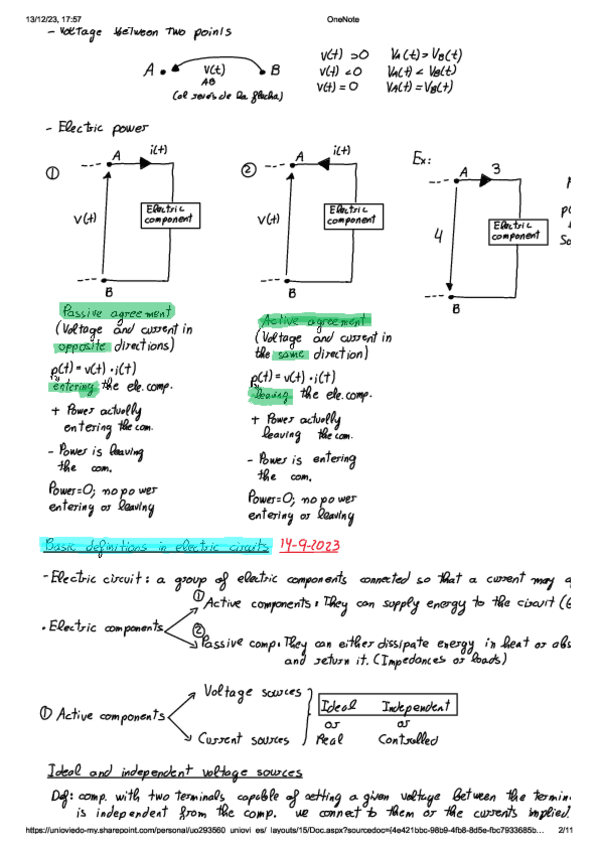 13/12/23, 17:57 OneNote
- Voltage between two points
A v(t) B
AB
(al revés de la flecha)
v(t) >0 VA(t) > VB(t)
v(t) <0 VA(t) < VB(t)
v(t) = 0 VA(t) = VB(t)
- Electric power
① A i(t)
v(t)
Electric
component
B
② A i(t)
v(t)
Electric
component
B
Ex:
A 3
4
Electric
component
B
Passive agreement
(Voltage and current in
opposite directions)
p(t) = v(t) · i(t)
entering the ele. comp.
+ Power actually
entering the com.
- Power is leaving
the com.
Power=0; no power
entering or leaving
Active agreement
(Voltage and current in
the same direction)
p(t) = v(t) · i(t)
leaving the ele. comp.
+ Power actually
leaving the com.
- Power is entering
the com.
Power=0; no power
entering or leaving
Basic definitions in electric circuits 14-9-2023
- Electric circuit: a group of electric components connected so that a current may
· Electric components
① Active components: They can supply energy to the circuit
② Passive comp. They can either dissipate energy in heat or
and return it. (Impedances or loads)
① Active components
Voltage sources
Current sources
Ideal Independent
or or
Real Controlled
Ideal and independent voltage sources
Def: comp. with two terminals capable of setting a given voltage between the
is independent from the comp. we connect to them or the currents implied.
https://unioviedo-my.sharepoint.com/personal/uo293560_uniovi_es/_layouts/15/Doc.aspx?sourcedoc={4e421bbc-98b9-4fb8-8d5e-fbc7933685b... 2/11